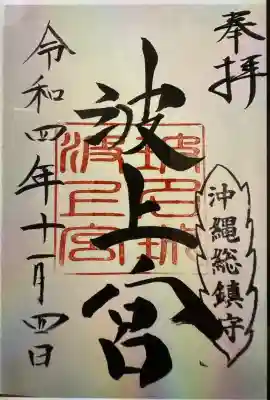 奉拝
沖縄総鎮守
波上宮
令和四年十一月四日